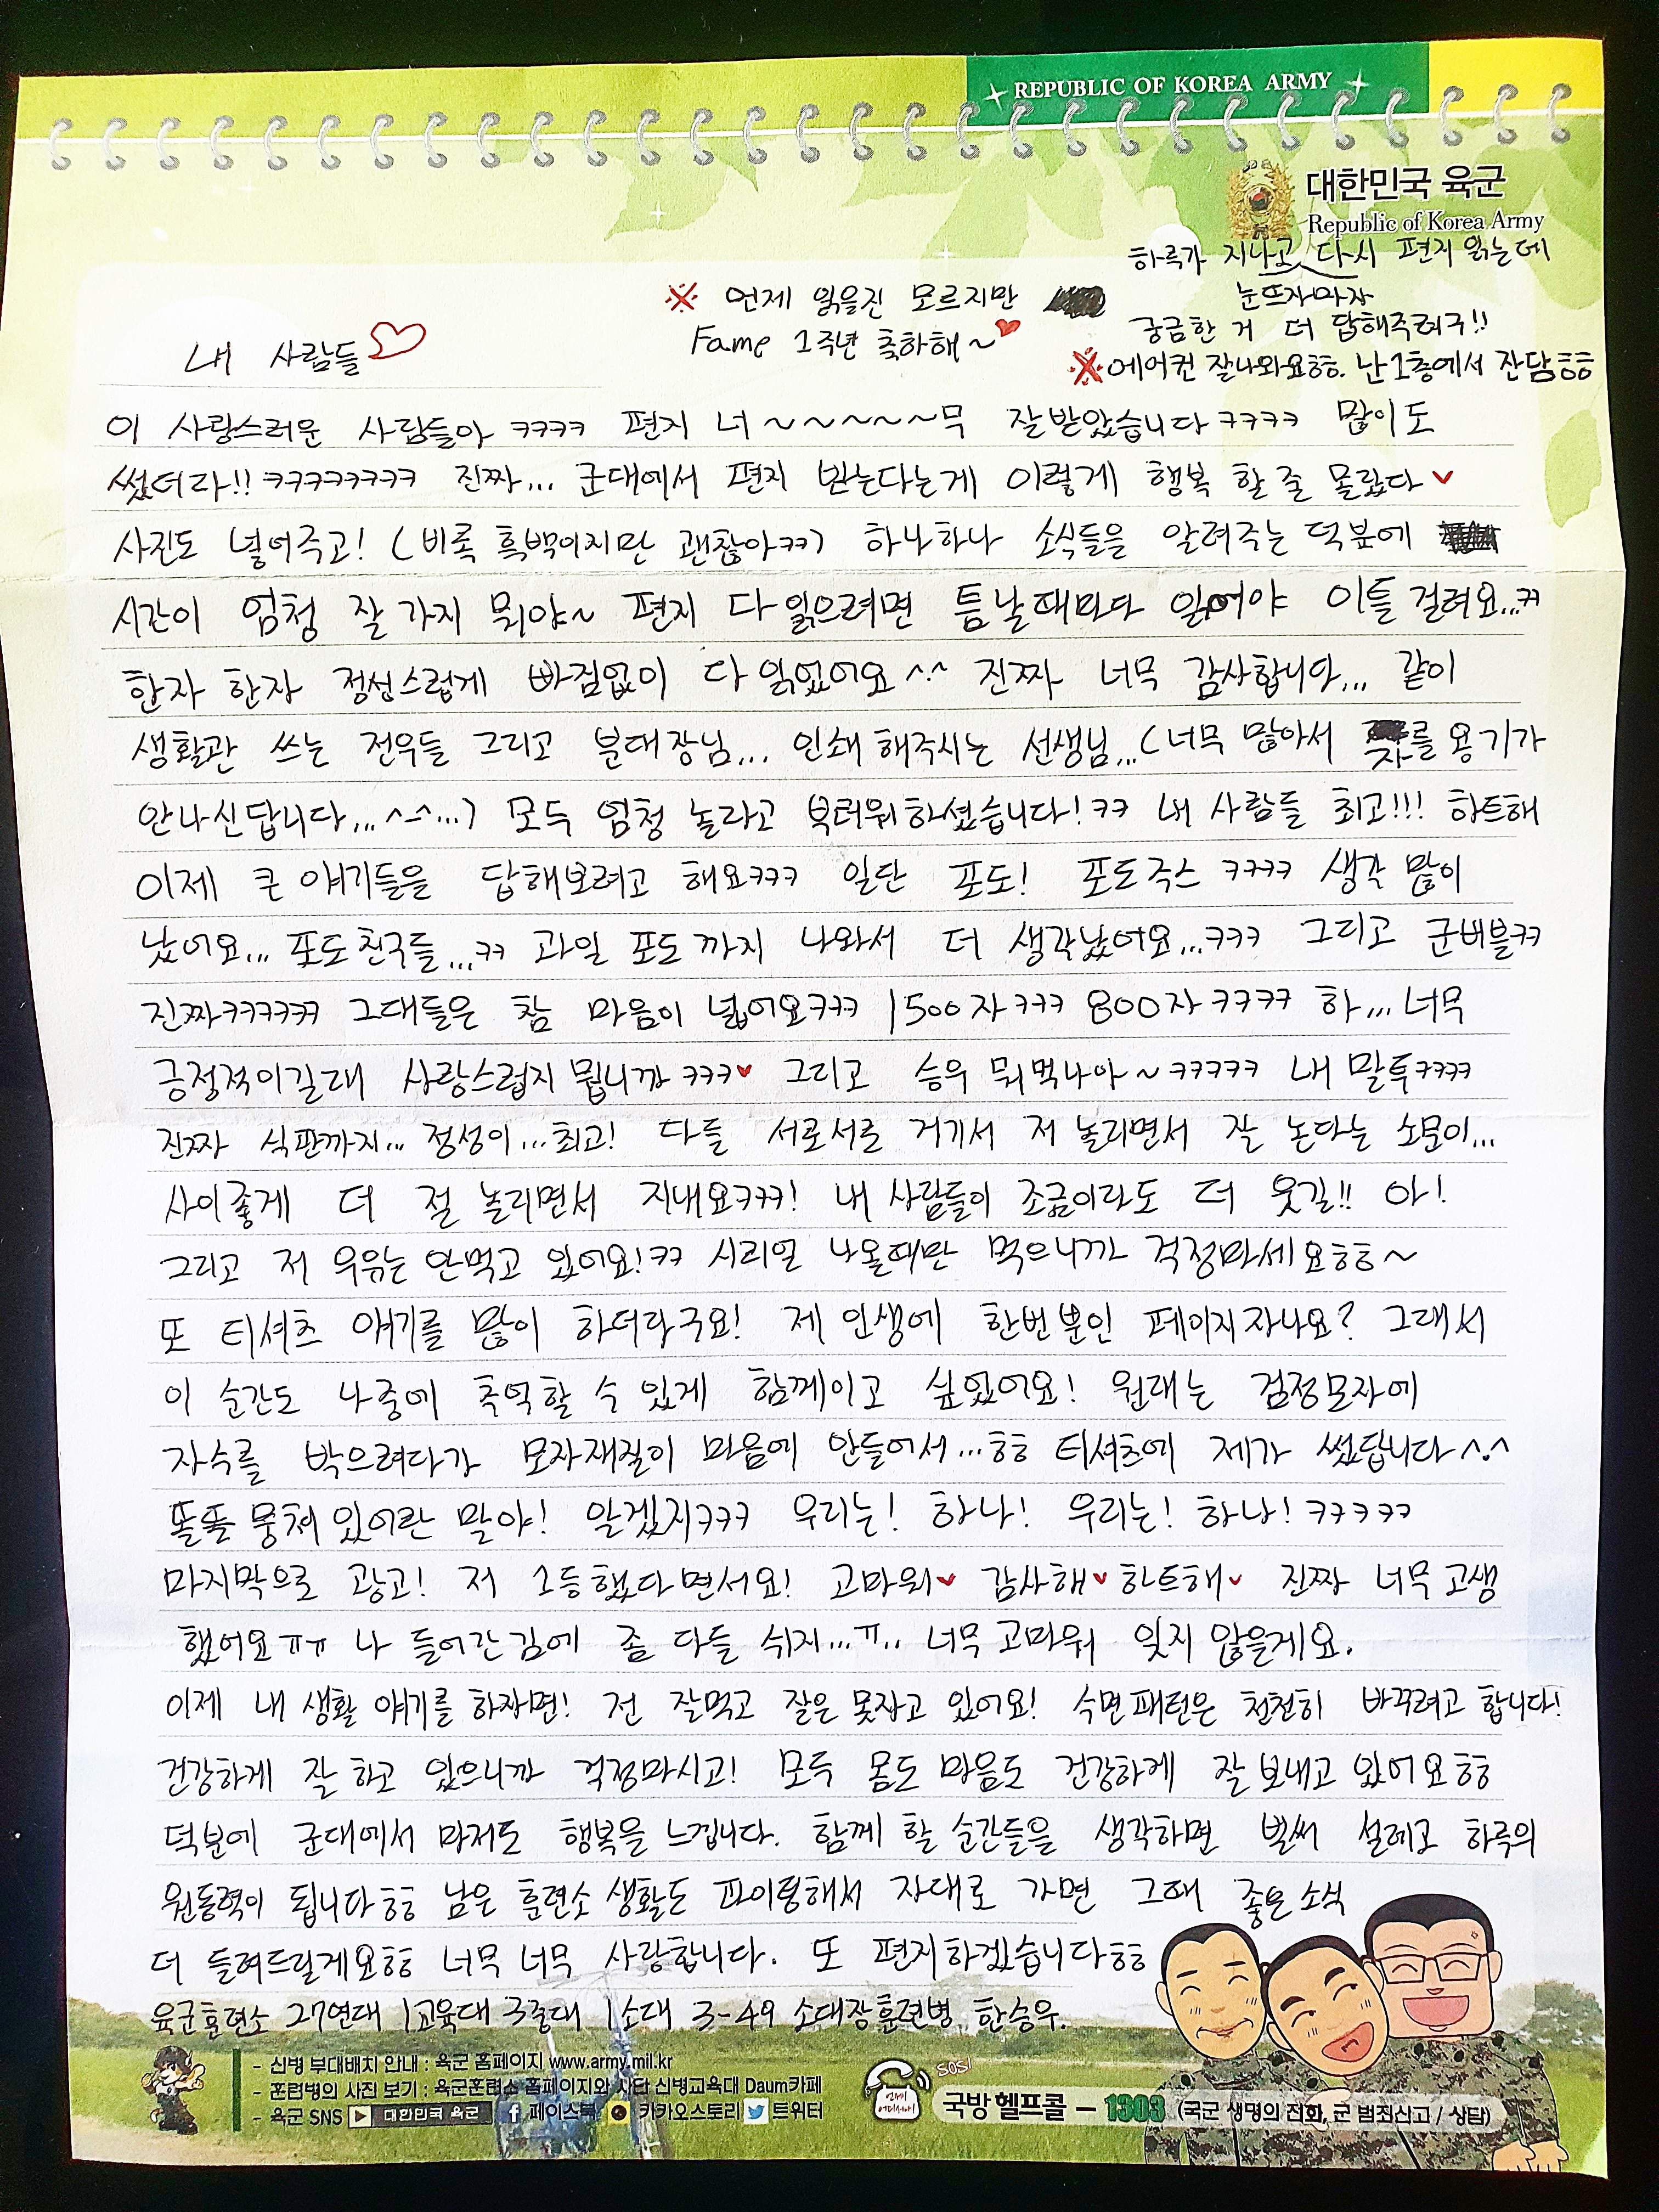 REPUBLIC OF KOREA ARMY
대한민국 육군
Republic of Korea Army
하루가 지나고 다시 편지 읽는데
눈뜨자마자
궁금한 거 더 답해주려구!!
※ 에어컨 잘나와요ㅎㅎ. 난 1층에서 잔담ㅎㅎ
※ 언제 읽을진 모르지만
Fame 1주년 축하해~♥
내 사람들♡
이 사랑스러운 사람들아 ㅋㅋㅋㅋ 편지 너~~~~~~무 잘받았습니다ㅋㅋㅋㅋ 많이도
썼더라!! ㅋㅋㅋㅋㅋㅋㅋㅋ 진짜... 군대에서 편지 받는다는게 이렇게 행복 할 줄 몰랐다♥
사진도 넣어주고! (비록 흑백이지만 괜찮아ㅋㅋ) 하나하나 소식들을 알려주는 덕분에
시간이 엄청 잘 가지 뭐야~ 편지 다 읽으려면 틈날때마다 읽어야 이틀 걸려요...ㅋㅋ
한자 한자 정성스럽게 빠짐없이 다 읽었어요^.^ 진짜 너무 감사합니다... 같이
생활관 쓰는 전우들 그리고 분대장님... 인쇄 해주시는 선생님...(너무 많아서 자를 용기가
안나신답니다...^-^...) 모두 엄청 놀라고 부러워하셨습니다!ㅋㅋ 내 사람들 최고!!! 하트해
이제 큰 얘기들을 답해보려고 해요ㅋㅋㅋ 일단 포도! 포도주스 ㅋㅋㅋㅋ 생각 많이
났어요... 포도친구들...ㅋㅋ 과일 포도까지 나와서 더 생각났어요...ㅋㅋㅋ 그리고 군버블ㅋㅋ
진짜ㅋㅋㅋㅋㅋㅋ 그대들은 참 마음이 넓어요ㅋㅋㅋ 1500자ㅋㅋㅋ 800자ㅋㅋㅋㅋ 하... 너무
긍정적이길래 사랑스럽지 뭡니까 ㅋㅋㅋ♥ 그리고 승우 뭐먹나아~ㅋㅋㅋㅋㅋ 내 말투ㅋㅋㅋㅋ
진짜 식판까지... 정성이...최고! 다들 서로서로 거기서 저 놀리면서 잘 논다는 소문이...
사이좋게 더 절 놀리면서 지내요ㅋㅋㅋ! 내 사람들이 조금이라도 더 웃길!! 아!
그리고 저 우유는 안먹고 있어요!ㅋㅋ 시리얼 나올때만 먹으니까 걱정마세요ㅎㅎ~
또 티셔츠 얘기를 많이 하더라구요! 제 인생에 한번뿐인 페이지잖아요? 그래서
이 순간도 나중에 추억할 수 있게 함께이고 싶었어요! 원래는 검정모자에
자수를 박으려다가 모자재질이 마음에 안들어서...ㅎㅎ 티셔츠에 제가 썼답니다^.^
똘똘 뭉쳐있어란 말야! 알겠지ㅋㅋㅋ 우리는! 하나! 우리는! 하나! ㅋㅋㅋㅋㅋ
마지막으로 광고! 저 1등했다면서요! 고마워♥ 감사해♥ 하트해♥ 진짜 너무 고생
했어요ㅠㅠ 나 들어간김에 좀 다들 쉬지...ㅠ.. 너무 고마워 잊지 않을게요.
이제 내 생활 얘기를 하자면! 전 잘먹고 잘은 못자고 있어요! 수면패턴은 천천히 바꾸려고 합니다!
건강하게 잘 하고 있으니까 걱정마시고! 모두 몸도 마음도 건강하게 잘 보내고 있어요ㅎㅎ
덕분에 군대에서 마저도 행복을 느낍니다. 함께 할 순간들을 생각하면 벌써 설레고 하루의
원동력이 됩니다ㅎㅎ 남은 훈련소 생활도 파이팅해서 자대로 가면 그때 좋은 소식
더 들려드릴게요ㅎㅎ 너무 너무 사랑합니다. 또 편지하겠습니다ㅎㅎ
육군훈련소 27연대 1교육대 3중대 1소대 3-49 소대장훈련병 한승우.
- 신병 부대배치 안내 : 육군 홈페이지 www.army.mil.kr
- 훈련병의 사진 보기 : 육군훈련소 홈페이지와 사단 신병교육대 Daum카페
- 육군 SNS 대한민국 육군 페이스북 카카오스토리 트위터
SOS!
언제! 어디서나!
국방헬프콜 - 1303 (국군 생명의 전화, 군 범죄신고 / 상담)